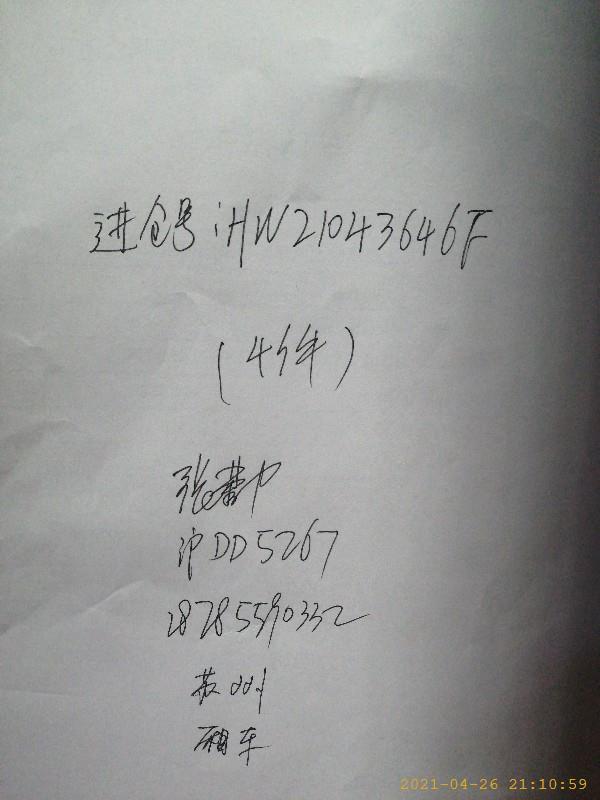 进仓号:HW21043646F
(4件)
张
沪DD5267
18785590332
苏州
厢车
2021-04-26 21:10:59